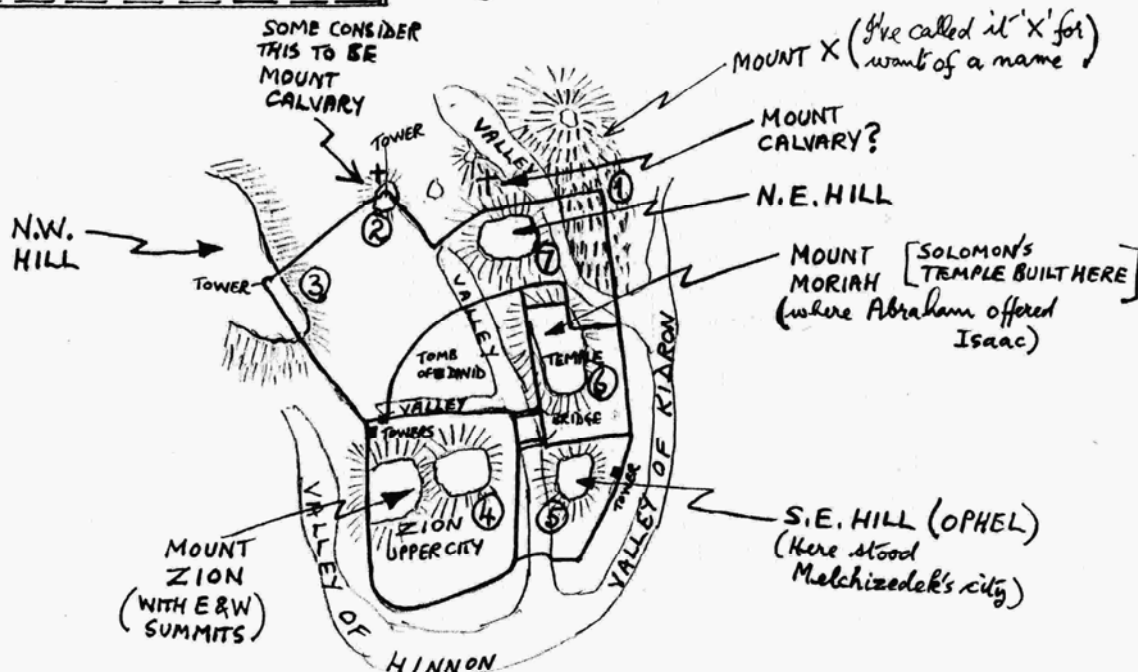 SOME CONSIDER
THIS TO BE
MOUNT
CALVARY
MOUNT X (I've called it 'X' for
want of a name)
TOWER
VALLEY
MOUNT
CALVARY?
1
N.E. HILL
N.W.
HILL
2
7
TOWER
3
MOUNT
MORIAH
[SOLOMON'S
TEMPLE BUILT HERE]
(where Abraham offered
Isaac)
VALLEY
TOMB
OF DAVID
TEMPLE
6
VALLEY
BRIDGE
TOWERS
TOWER
VALLEY OF KIDRON
4
5
ZION
UPPER CITY
S.E. HILL (OPHEL)
(Here stood
Melchizedek's city)
MOUNT
ZION
(WITH E & W
SUMMITS)
VALLEY OF HINNON